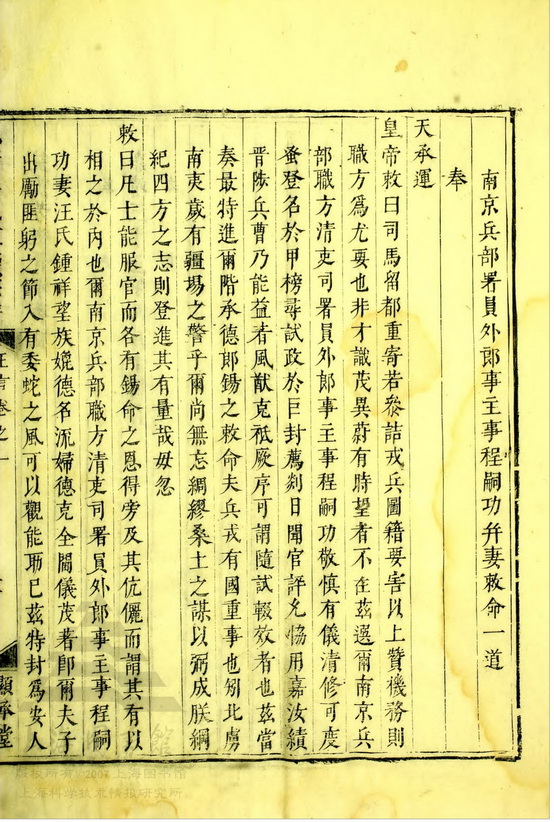 南京兵部署員外郎事主事程嗣功并妻敕命一道
奉
天承運
皇帝敕曰司馬留都重寄若叅詰戎兵圖籍要害以上贊機務則
職方爲尤要也非才識茂異蔚有時望者不在茲選爾南京兵
部職方清吏司署員外郎事主事程嗣功敬慎有儀清修可度
蚤登名於甲榜尋試政於巨封薦剡日聞官評允恊用嘉汝績
晉陟兵曹乃能益着風猷克祗厥序可謂隨試輙效者也茲當
奏最特進爾階承德郎錫之敕命夫兵戎有國重事也矧北虜
南夷歲有疆埸之警乎爾尚無忘綢繆桑土之謀以弼成朕綱
紀四方之志則登進其有量哉毋忽
敕曰凡士能服官而各有錫命之恩得旁及其伉儷而謂其有以
相之於內也爾南京兵部職方清吏司署員外郎事主事程嗣
功妻汪氏鍾祥望族娩德名流婦德克全閫儀茂著卽爾夫子
出勵匪躬之節入有委蛇之風可以觀能助已茲特封爲安人
卷之一
顯承堂
版权所有 2007 上海图书馆
上海科学技术情报研究所